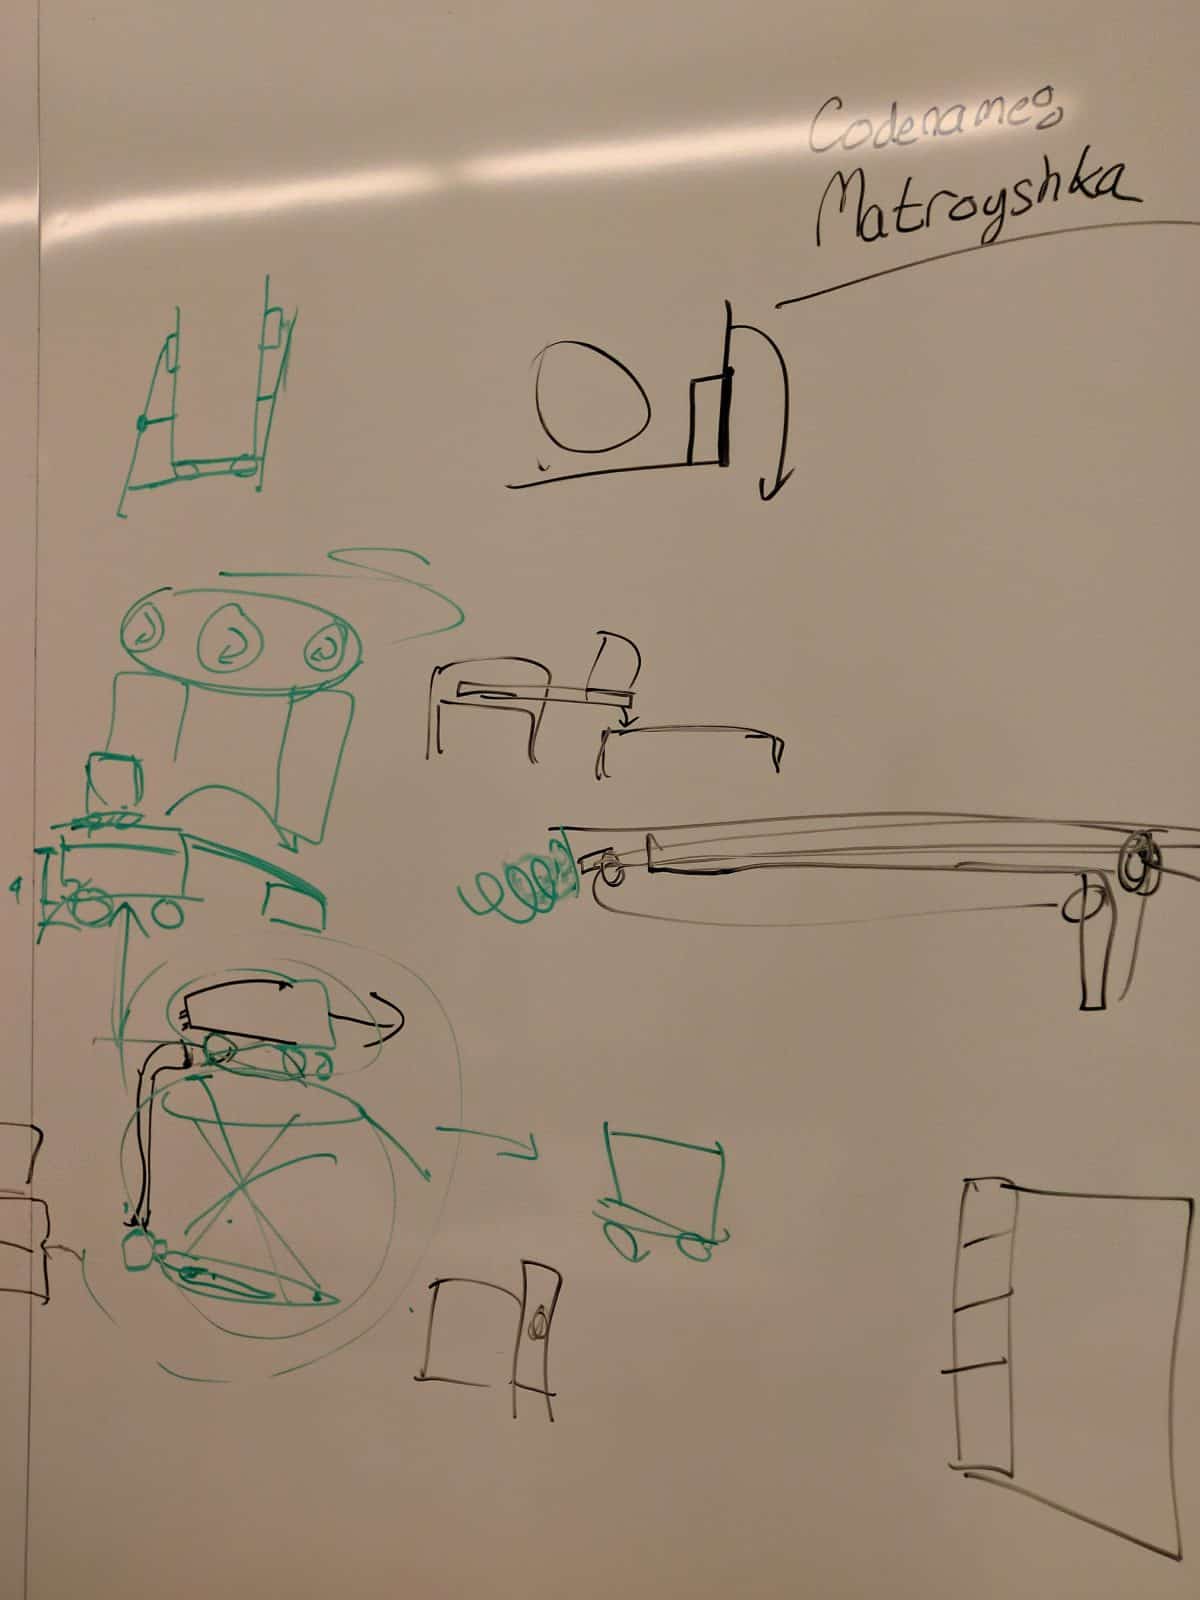 Codename:
Matroyshka